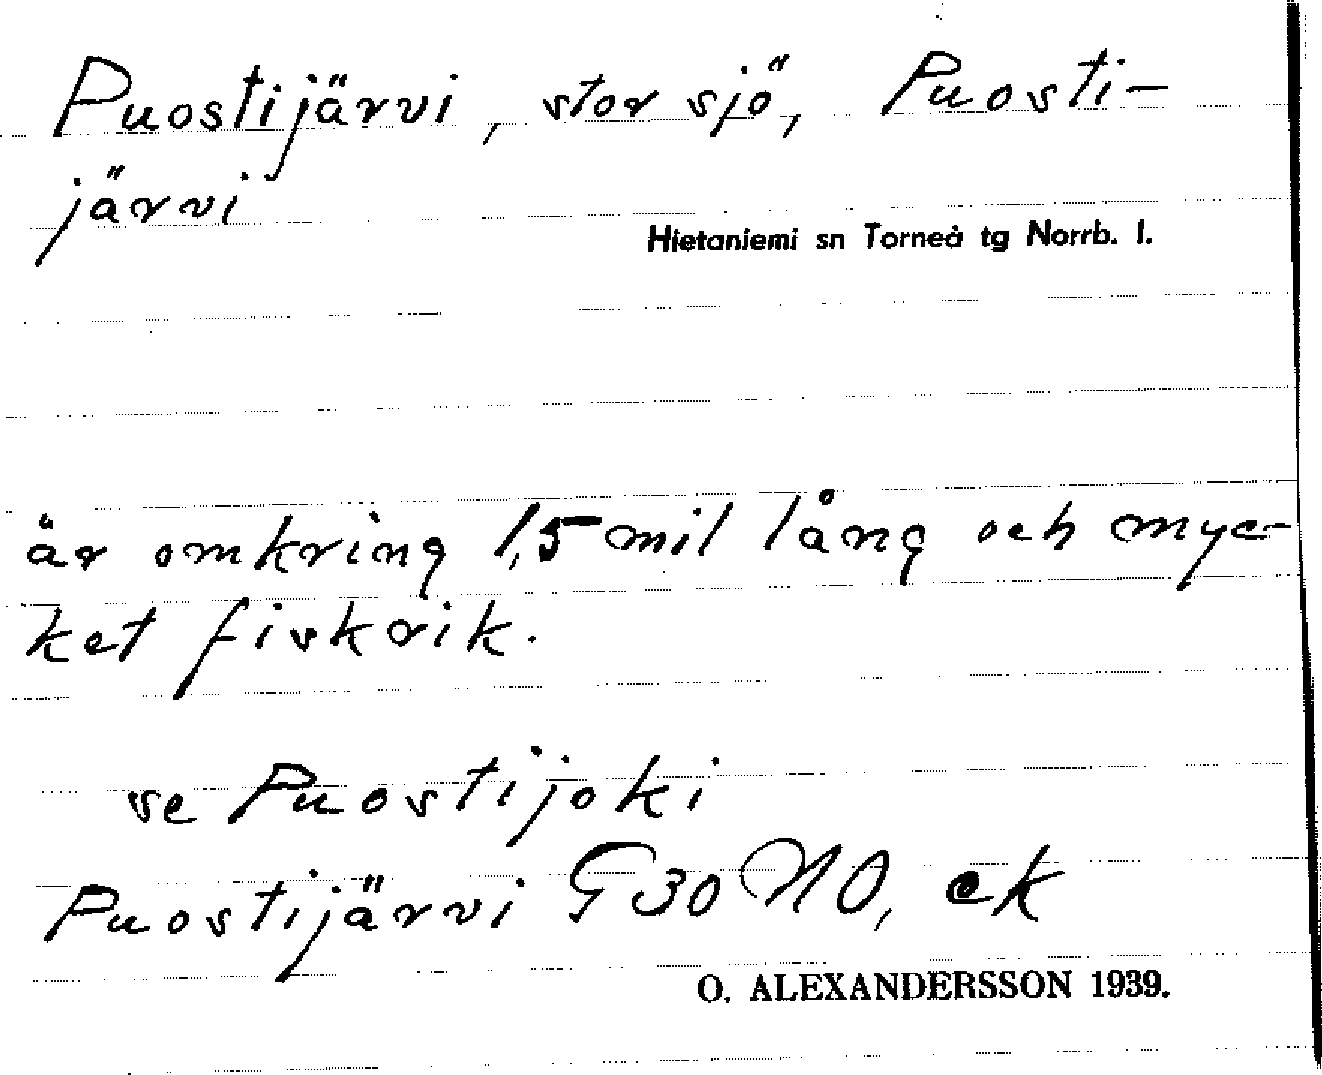 Puostijärvi, stor sjö, Puosti-
järvi
Hietaniemi sn Torneå tg Norrb. l.
är omkring 1,5 mil lång och myc-
ket fiskrik.
se Puostijoki
Puostijärvi G 30 NO, ek
O. ALEXANDERSSON 1939.